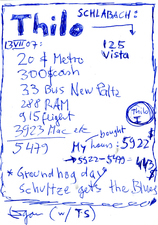 SCHLABACH:
Thilo
13VII07:
125
Vista
20 $ Metro
300$ cash
33 Bus New Paltz
288 RAM
915 flight
3923 Mac etc
bought
5479
My hours: 5922$
→ 5922 - 5479 = 443$
* Groundhog day
Schultze gets the Blues
(w/ TS)